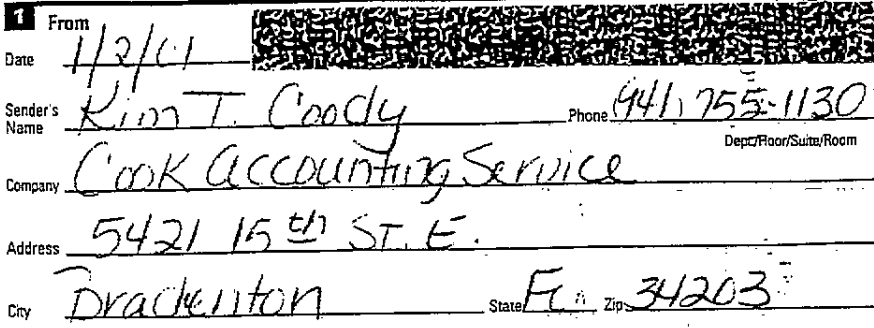 1 From
Date 1/2/01
Sender's Name Kim T. Coody Phone (941) 755-1130
Dept./Floor/Suite/Room
Company Cook Accounting Service
Address 5421 15th ST. E.
City Bradenton State FL Zip 34203